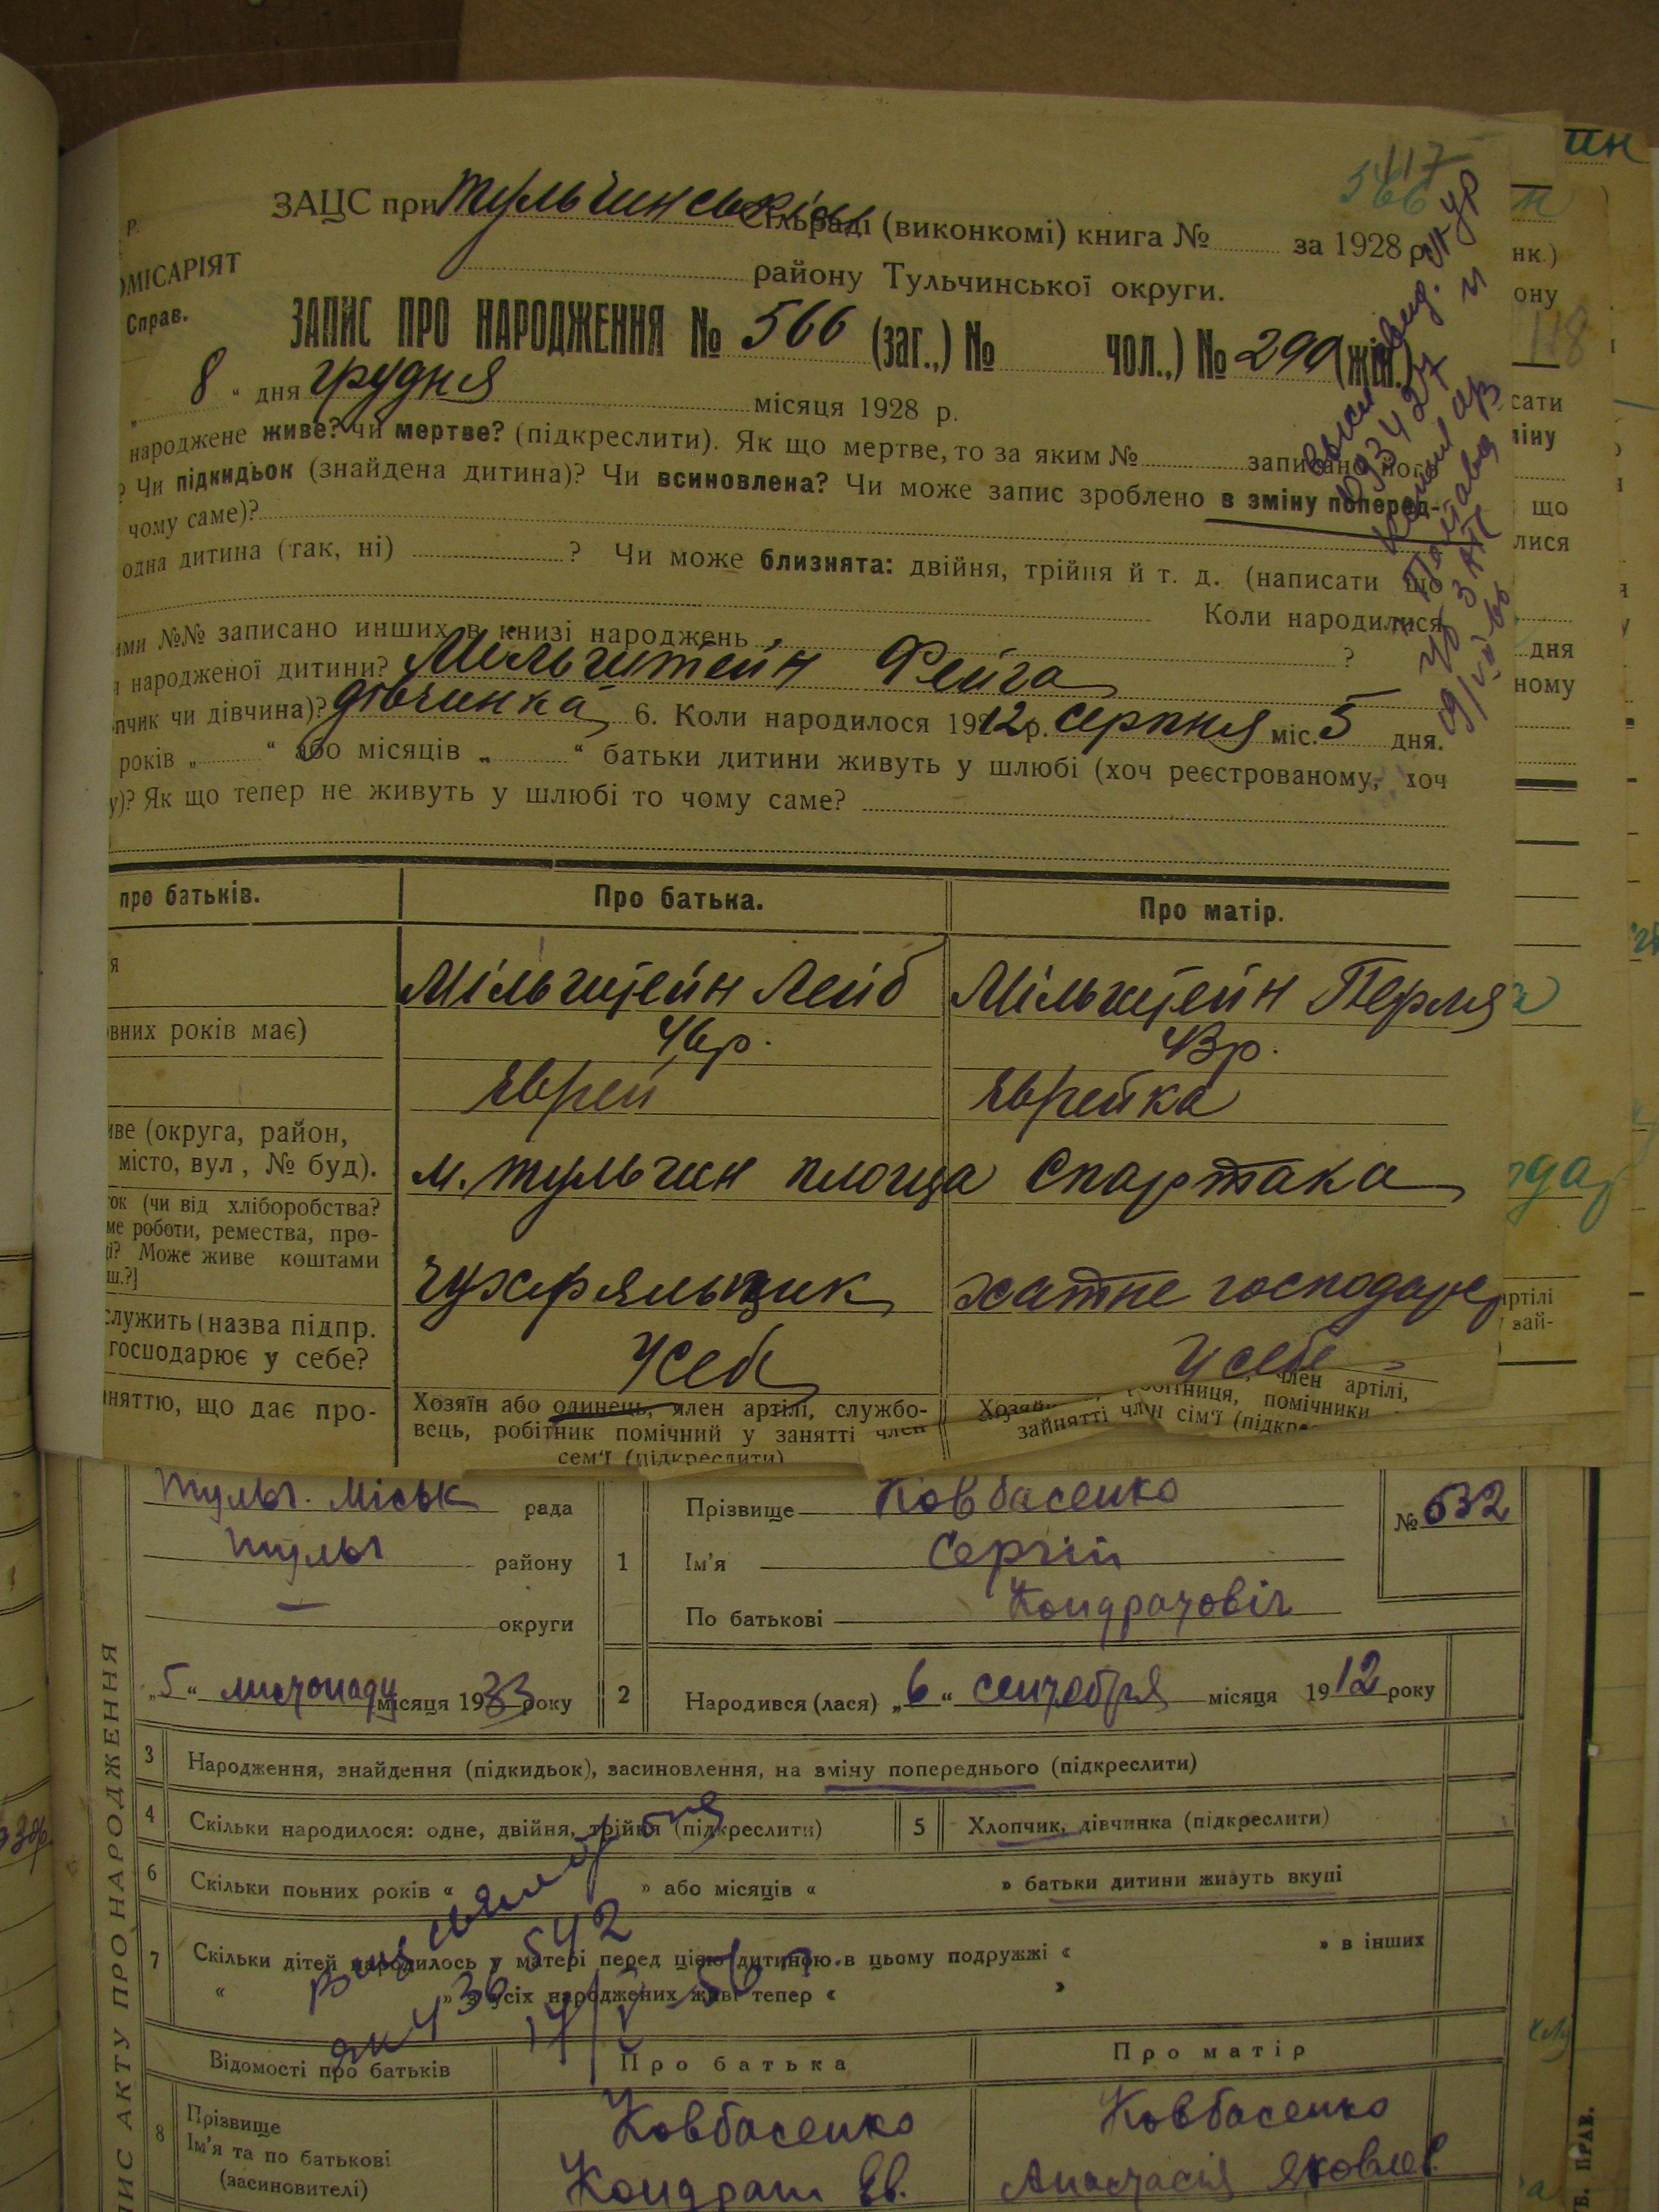 117
566
ЗАЦС при Тульчинськ сільраді (виконкомі) книга № за 1928 р.
району Тульчинської округи.
ОМІСАРІЯТ
Справ.
ЗАПИС ПРО НАРОДЖЕННЯ № 566 (заг.,) № чол.,) № 290 (жін.)
„ 8 “ дня грудня місяця 1928 р.
народжене живе? чи мертве? (підкреслити). Як що мертве, то за яким № записано його
? Чи підкидьок (знайдена дитина)? Чи всиновлена? Чи може запис зроблено в зміну поперед-
чому саме)?
одна дитина (так, ні) ? Чи може близнята: двійня, трійня й т. д. (написати що
Коли народилися
ими №№ записано инших в книзі народжень ?
народженої дитини? Мільгштейн Фейга
пчик чи дівчина)? дівчинка 6. Коли народилося 1912 р. серпня міс. 5 дня.
років „ “ або місяців „ “ батьки дитини живуть у шлюбі (хоч реєстрованому, хоч
у)? Як що тепер не живуть у шлюбі то чому саме?
про батьків. Про батька. Про матір.
я Мільгштейн Лейб Мільгштейн Перля
вних років має) 46 р. 43 р.
Єврей Єврейка
ве (округа, район,
місто, вул, № буд). м. Тульчин площа Спартака
ток (чи від хліборобства?
ме роботи, ремества, про-
і? Може живе коштами
ш.?] хатне господар
служить (назва підпр.
господарює у себе? У себе У себе
няттю, що дає про- Хозяїн або одинець, член артілі, службо-
вець, робітник помічний у занятті член
сем'ї (підкреслити)
член артілі,
помічники
зайнятті член сім'ї (підкре
Тульч. Міськ рада
Тульч району
— округи
1 Прізвище Ковбасенко
Ім'я Сергій
По батькові Кондратовіч
№ 632
„5“ листопаду місяця 1933 року
2 Народився (лася) „6“ сентября місяця 1912 року
3 Народження, знайдення (підкидьок), засиновлення, на зміну попереднього (підкреслити)
4 Скільки народилося: одне, двійня, трійня (підкреслити) 5 Хлопчик, дівчинка (підкреслити)
6 Скільки повних років « » або місяців « » батьки дитини живуть вкупі
7 Скільки дітей народилось у матері перед цією дитиною в цьому подружжі « » в інших
« » з усіх народжених живі тепер « »
Відомості про батьків Про батька Про матір
8 Прізвище
Ім'я та по батькові
(засиновителі)
Ковбасенко Ковбасенко
Кондрат Єв. Анастасія Яковлев.
ПИС АКТУ ПРО НАРОДЖЕННЯ